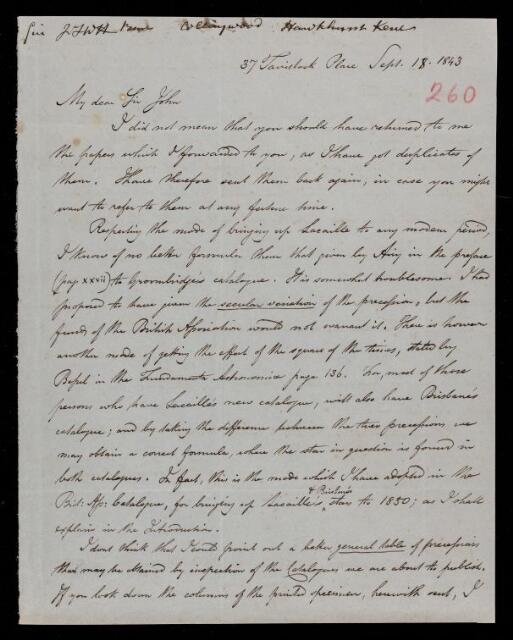 Sir J F W H Collingwood Hawkhurst Kent
37 Tavistock Place Sept. 18. 1843
260
My dear Sir John
I did not mean that you should have returned to me
the papers which I forwarded to you, as I have got duplicates of
them. I have therefore sent them back again, in case you might
want to refer to them at any future time.
Respecting the mode of bringing up Lacaille to any modern period,
I know of no better formula than that given by Airy in the preface
(pag xxvii) to Groombridge's catalogue. It is somewhat troublesome. I had
proposed to have given the secular variation of the precession, but the
funds of the British Association would not warrant it. There is however
another mode of getting the effect of the square of the times, stated by
Bessel in the Fundamenta Astronomiæ page 136. For, most of those
persons who have Lacaille's new catalogue, will also have Brisbane's
catalogue; and by taking the difference between the two precessions, we
may obtain a correct formula, where the star in question is found in
both catalogues. In fact, this is the mode which I have adopted in the
Brit: Ass: Catalogue, for bringing up Lacaille's & Brisbane's stars to 1850; as I shall
explain in the Introduction.
I dont think that I could point out a better general table of precessions
than may be attained by inspection of the Catalogues we are about to publish.
If you look down the columns of the printed specimen, herewith sent, I